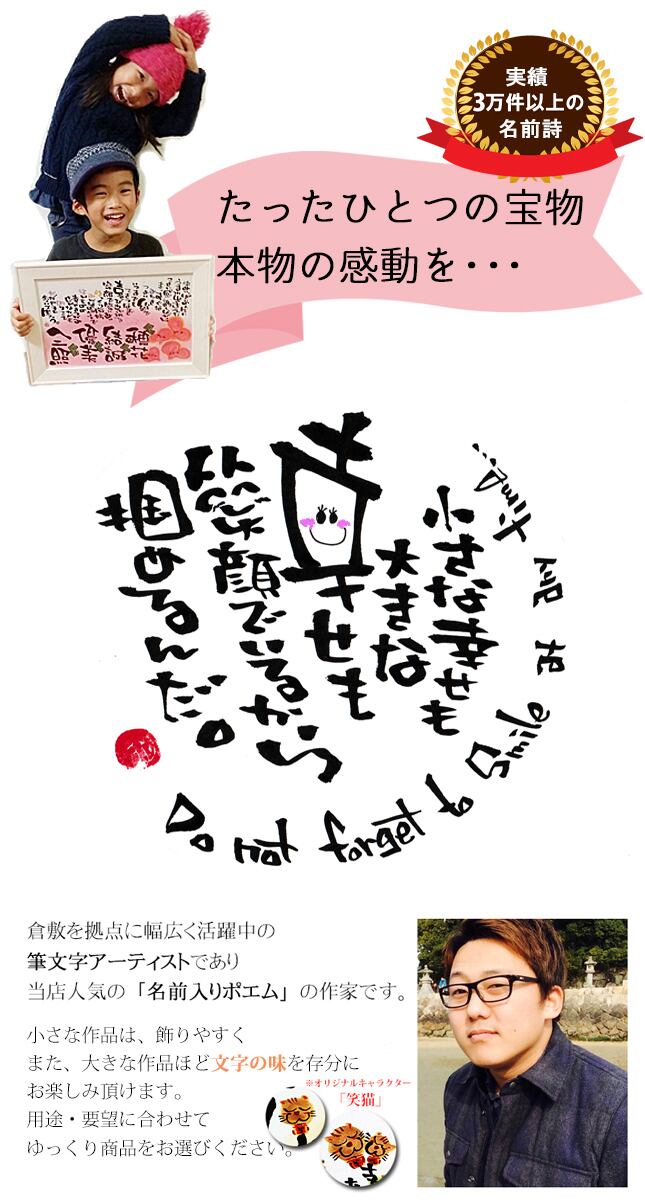 実績
3万件以上の
名前詩
たったひとつの宝物
本物の感動を・・・
小さな幸せも
大きな
幸せも
笑顔でいるから
掴めるんだ。
Do not forget to Smile
at
any
time...
倉敷を拠点に幅広く活躍中の
筆文字アーティストであり
当店人気の「名前入りポエム」の作家です。
小さな作品は、飾りやすく
また、大きな作品ほど文字の味を存分に
お楽しみ頂けます。
用途・要望に合わせて
ゆっくり商品をお選びください。
※オリジナルキャラクター
「笑猫」